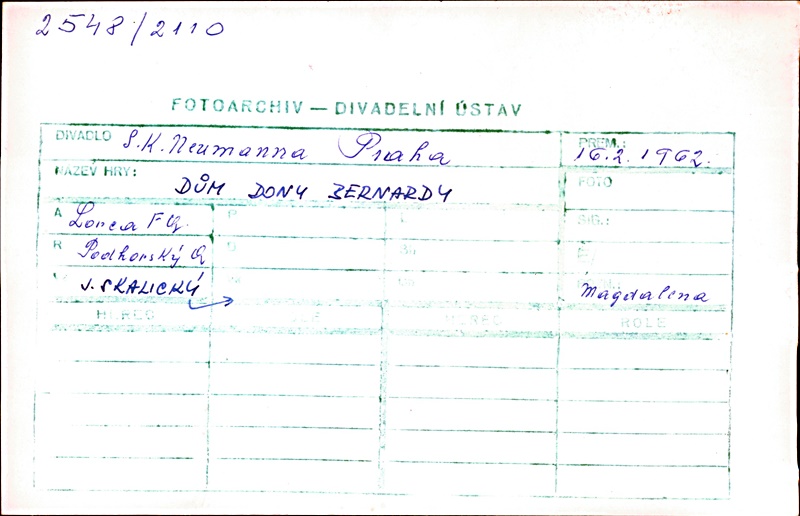 2548/2110
FOTOARCHIV — DIVADELNÍ ÚSTAV
DIVADLO S.K.Neumanna Praha PREM.: 16.2. 1962.
NÁZEV HRY: DŮM DONY BERNARDY FOTO
A Lorca F G. P SIG.:
R Podhorský
J. SKALICKÝ Magdalena
HEREC ROLE HEREC ROLE